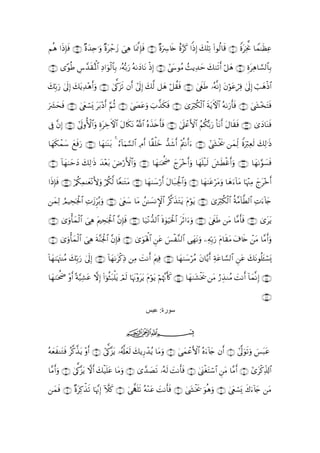 عِظَـٰمًا نَّخِرَةً ۝ قَالُوا۟ تِلْكَ إِذًا كَرَّةٌ خَاسِرَةٌ ۝ فَإِنَّمَا هِىَ زَجْرَةٌ وَٰحِدَةٌ ۝ فَإِذَا هُم
بِٱلسَّاهِرَةِ ۝ هَلْ أَتَىٰكَ حَدِيثُ مُوسَىٰٓ ۝ إِذْ نَادَىٰهُ رَبُّهُۥ بِٱلْوَادِ ٱلْمُقَدَّسِ طُوًى ۝
ٱذْهَبْ إِلَىٰ فِرْعَوْنَ إِنَّهُۥ طَغَىٰ ۝ فَقُلْ هَل لَّكَ إِلَىٰٓ أَن تَزَكَّىٰ ۝ وَأَهْدِيَكَ إِلَىٰ رَبِّكَ
فَتَخْشَىٰ ۝ فَأَرَىٰهُ ٱلْـَٔايَةَ ٱلْكُبْرَىٰ ۝ فَكَذَّبَ وَعَصَىٰ ۝ ثُمَّ أَدْبَرَ يَسْعَىٰ ۝ فَحَشَرَ
فَنَادَىٰ ۝ فَقَالَ أَنَا۠ رَبُّكُمُ ٱلْأَعْلَىٰ ۝ فَأَخَذَهُ ٱللَّهُ نَكَالَ ٱلْـَٔاخِرَةِ وَٱلْأُولَىٰٓ ۝ إِنَّ فِى
ذَٰلِكَ لَعِبْرَةً لِّمَن يَخْشَىٰٓ ۝ ءَأَنتُمْ أَشَدُّ خَلْقًا أَمِ ٱلسَّمَآءُ ۚ بَنَىٰهَا ۝ رَفَعَ سَمْكَهَا
فَسَوَّىٰهَا ۝ وَأَغْطَشَ لَيْلَهَا وَأَخْرَجَ ضُحَىٰهَا ۝ وَٱلْأَرْضَ بَعْدَ ذَٰلِكَ دَحَىٰهَآ ۝
أَخْرَجَ مِنْهَا مَآءَهَا وَمَرْعَىٰهَا ۝ وَٱلْجِبَالَ أَرْسَىٰهَا ۝ مَتَـٰعًا لَّكُمْ وَلِأَنْعَـٰمِكُمْ ۝ فَإِذَا
جَآءَتِ ٱلطَّآمَّةُ ٱلْكُبْرَىٰ ۝ يَوْمَ يَتَذَكَّرُ ٱلْإِنسَـٰنُ مَا سَعَىٰ ۝ وَبُرِّزَتِ ٱلْجَحِيمُ لِمَن
يَرَىٰ ۝ فَأَمَّا مَن طَغَىٰ ۝ وَءَاثَرَ ٱلْحَيَوٰةَ ٱلدُّنْيَا ۝ فَإِنَّ ٱلْجَحِيمَ هِىَ ٱلْمَأْوَىٰ ۝
وَأَمَّا مَنْ خَافَ مَقَامَ رَبِّهِۦ وَنَهَى ٱلنَّفْسَ عَنِ ٱلْهَوَىٰ ۝ فَإِنَّ ٱلْجَنَّةَ هِىَ ٱلْمَأْوَىٰ ۝
يَسْـَٔلُونَكَ عَنِ ٱلسَّاعَةِ أَيَّانَ مُرْسَىٰهَا ۝ فِيمَ أَنتَ مِن ذِكْرَىٰهَآ ۝ إِلَىٰ رَبِّكَ مُنتَهَىٰهَآ
۝ إِنَّمَآ أَنتَ مُنذِرُ مَن يَخْشَىٰهَا ۝ كَأَنَّهُمْ يَوْمَ يَرَوْنَهَا لَمْ يَلْبَثُوٓا۟ إِلَّا عَشِيَّةً أَوْ ضُحَىٰهَا
۝
سورة: عبس
بِسْمِ ٱللَّهِ ٱلرَّحْمَـٰنِ ٱلرَّحِيمِ
عَبَسَ وَتَوَلَّىٰٓ ۝ أَن جَآءَهُ ٱلْأَعْمَىٰ ۝ وَمَا يُدْرِيكَ لَعَلَّهُۥ يَزَّكَّىٰٓ ۝ أَوْ يَذَّكَّرُ فَتَنفَعَهُ
ٱلذِّكْرَىٰٓ ۝ أَمَّا مَنِ ٱسْتَغْنَىٰ ۝ فَأَنتَ لَهُۥ تَصَدَّىٰ ۝ وَمَا عَلَيْكَ أَلَّا يَزَّكَّىٰ ۝ وَأَمَّا
مَن جَآءَكَ يَسْعَىٰ ۝ وَهُوَ يَخْشَىٰ ۝ فَأَنتَ عَنْهُ تَلَهَّىٰ ۝ كَلَّآ إِنَّهَا تَذْكِرَةٌ ۝ فَمَن